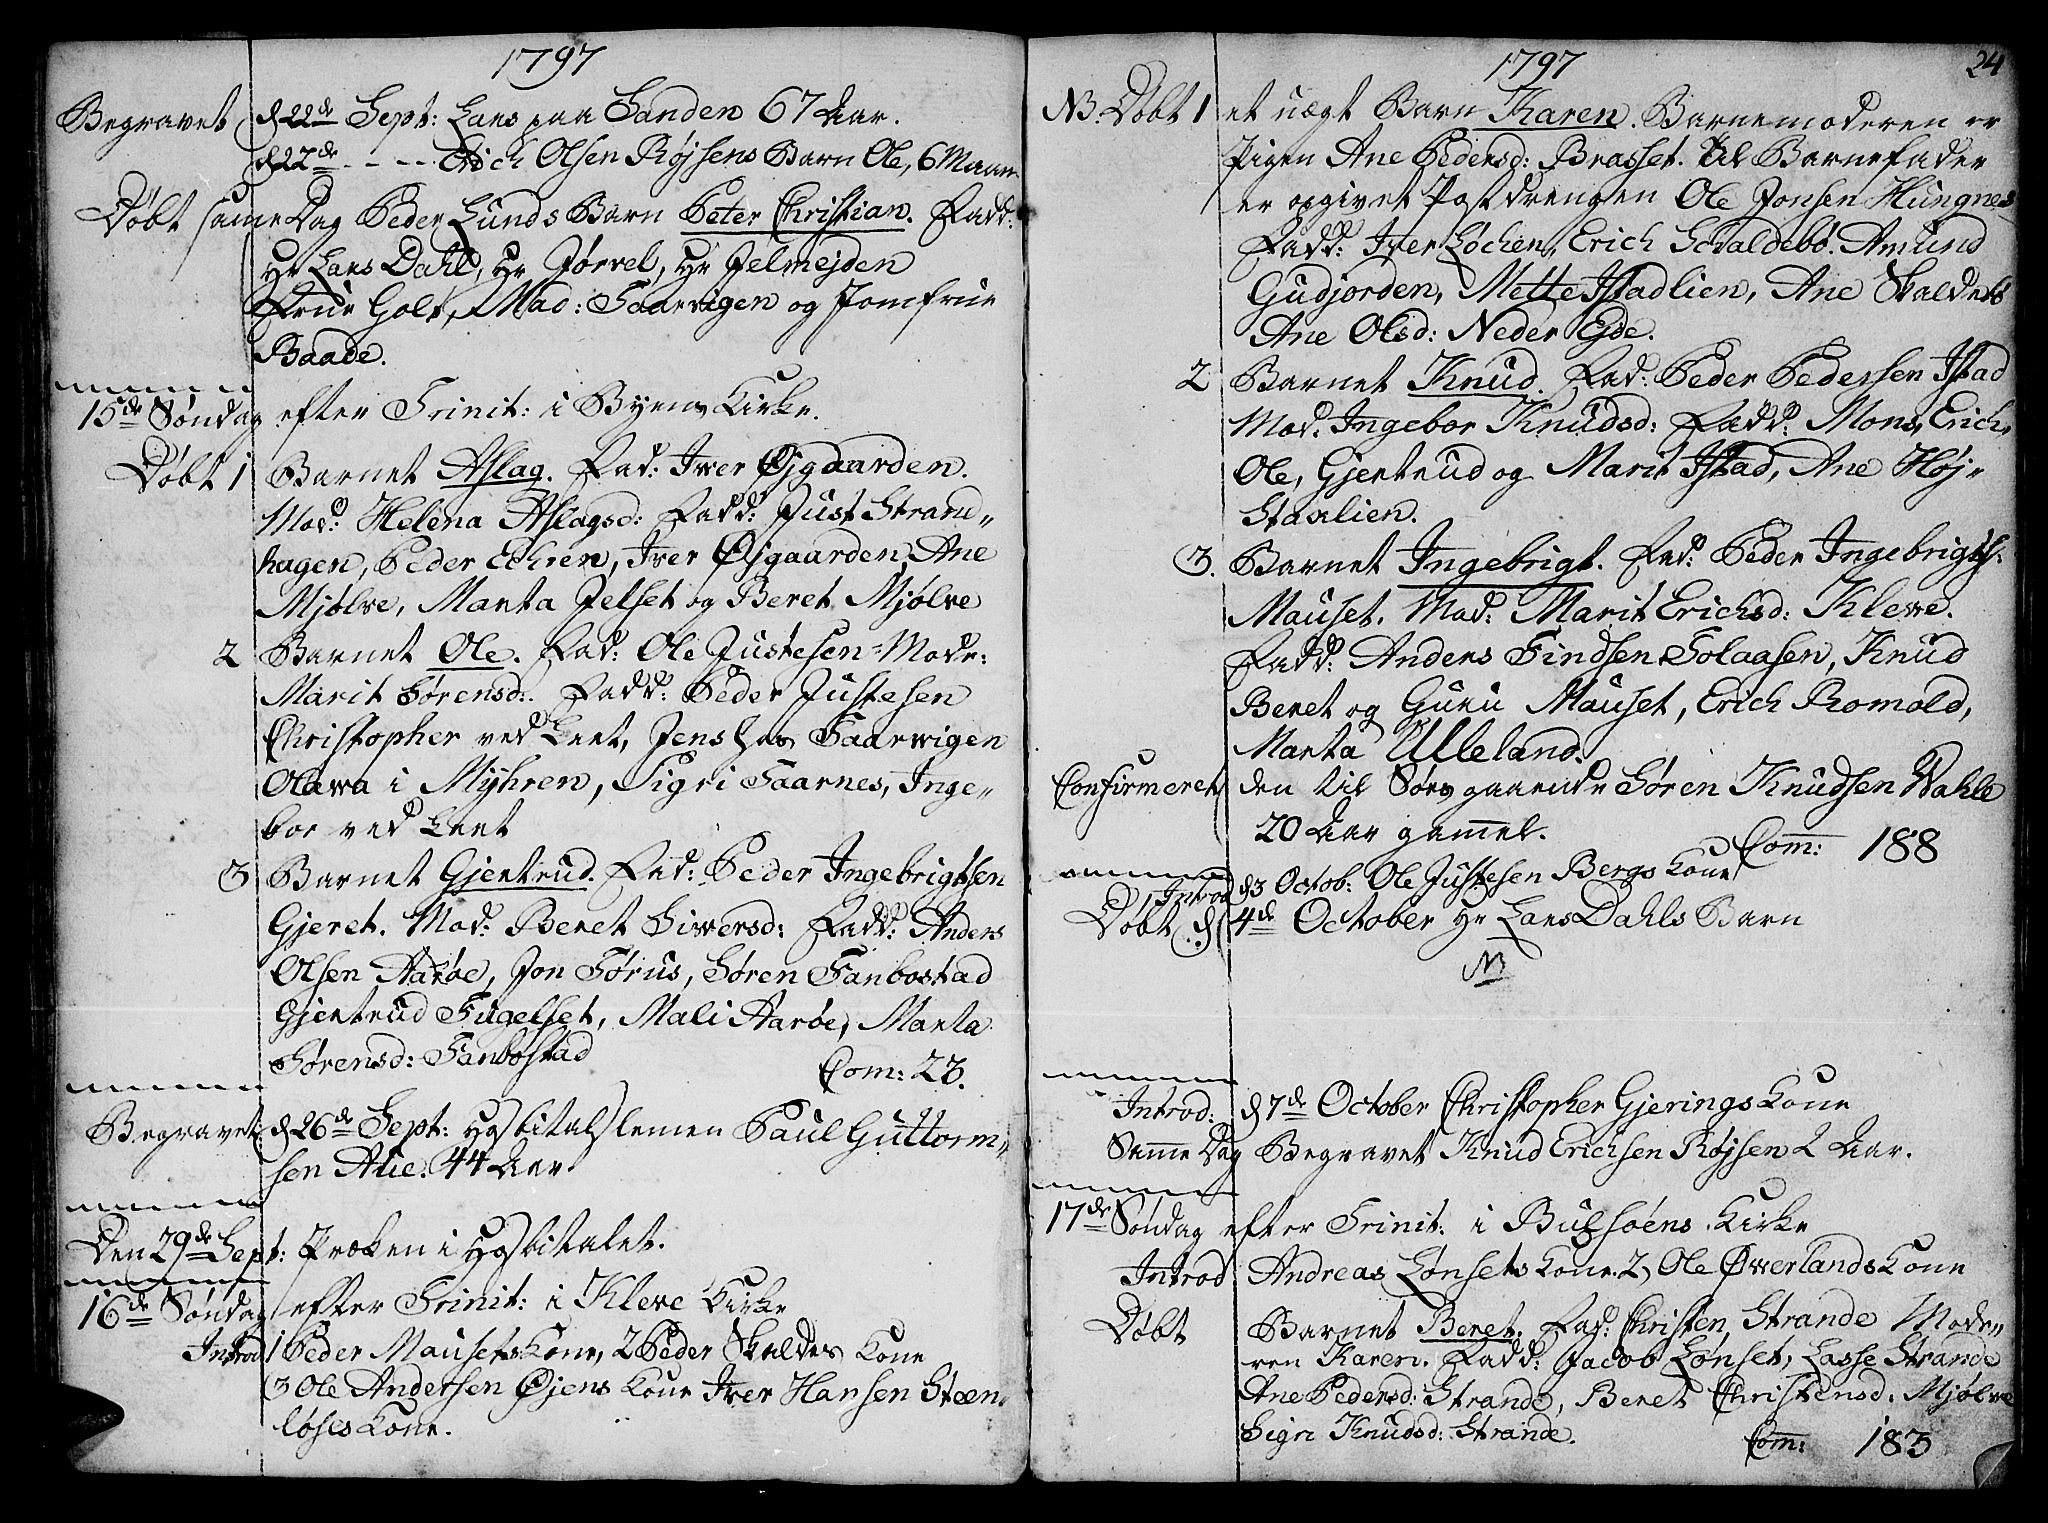 1797
Begravet d 22de Sept: Lars paa Sanden 67 Aar.
d 22de - - - Erich Olsen Røjsens Barn Ole, 6 Maan
Døbt same Dag Peder Lunds Barn Peter Christian. Fadd:
Hr Lars Dahl, Hr Jørvel, Hr Jelmejden
Frue Holt, Mad: Faarvigen og Jomfrue
Baade.
15de Søndag efter Trinit: i Byens Kirke.
Døbt 1 Barnet Aslag. Fad: Iver Øjgaarden.
Mod: Helena Aslagsd: Fadd: Just Strand„
hagen, Peder Echren, Iver Øjgaarden, Ane
Mjølve, Marta Jelset og Beret Mjølve
2 Barnet Ole. Fad: Ole Justesen Mode:
Marit Sørensd: Fadd: Peder Justesen
Christopher ved Leet, Jens Faarwigen
Olava i Myhren, Sigri Faarnes, Inge„
bor ved Leet
3 Barnet Gjertrud. Fad: Peder Ingebrigtsen
Gjeret. Mod: Beret Siwersd: Fadd: Anders
Olsen Aarøe, Jon Førus, Søren Fanbostad
Gjertrud Fugelset, Mali Aarøe, Marta
Sørensd: Fanbostad
Com: 23.
Begravet d 26de Sept: Hospitalslemen Paul Guttorm„
sen Aue. 44 Aar
Den 29de Sept: Præken i Hospitalet.
16de Søndag efter Trinit: i Kleve Kirke
Introd 1 Peder Mausets Kone, 2 Peder Skaldes Kone
3 Ole Andersen Øjens Kone Iver Hansen Steen„
løses Kone.
1797
24
NB. Døbt 1 et uægt Barn Karen. Barnemoderen er
Pigen Ane Pedersd: Brasset. til Barnefader
er opgivet Postdrengen Ole Jonsen Hungnes
Fadd: Iver Løchen, Erich Schaldebø. Amund
Gudjorden, Mette Istadlien, Ane Skaldebø
Ane Olsd: Neder Ejde.
2 Barnet Knud. Fad: Peder Pedersen Istad
Mod: Ingebor Knudsd: Fadd: Mons, Erich,
Ole, Gjertrud og Marit Istad, Ane Høj„
staxlien.
3. Barnet Ingebrigt. Fad: Peder Ingebrigts:
Mauset. Mod: Marit Erichsd: Kleve.
Fadd: Anders Findsen Solaasen, Knud
Beret og Guru Mauset, Erich Romold,
Marta Ulleland.
Confirmeret den til Sørs gaaende Søren Knudsen Wahle
20 Aar gamel.
Com: 188
Introd d 3 Octob: Ole Justesen Bergs Kone
Døbt d 4de October Hr Lars Dahls Barn
NB
Introd: d 7de October Christopher Gjerings Kone
Same Dag Begravet Knud Erichsen Røjsen 2 Aar.
17de Søndag efter Trinit: i Bulsøens Kirke
Introd Andreas Lønsets Kone. 2, Ole Øwerlands Kone
Døbt Barnet Beret. Fad: Christen Strande Mode„
ren Karen. Fadd: Jacob Lønset, Lasse Strande
Ane Pedersd: Strande, Beret Christensd: Mjølve
Sigri Knudsd: Strande.
Com: 183